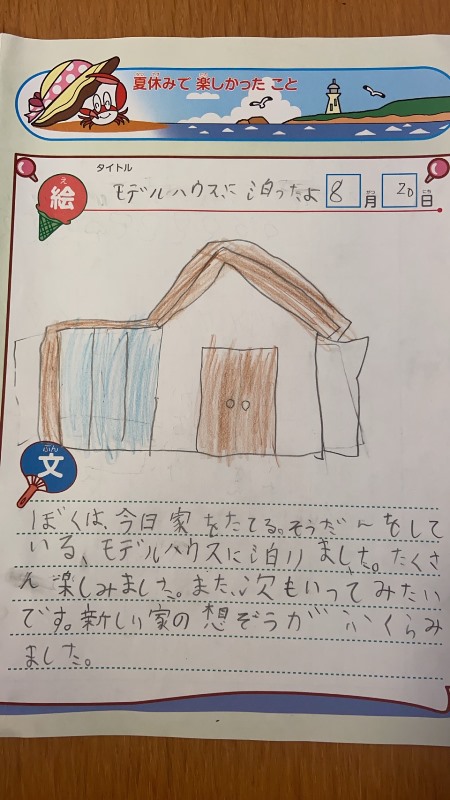 夏休みで楽しかったこと
タイトル
絵
モデルハウスに泊ったよ 8月20日
文
ぼくは、今日家をたてる。そうだんをして
いる、モデルハウスに泊りました。たくさ
ん楽しみました。また、次もいってみたい
です。新しい家の想ぞうがふくらみ
ました。